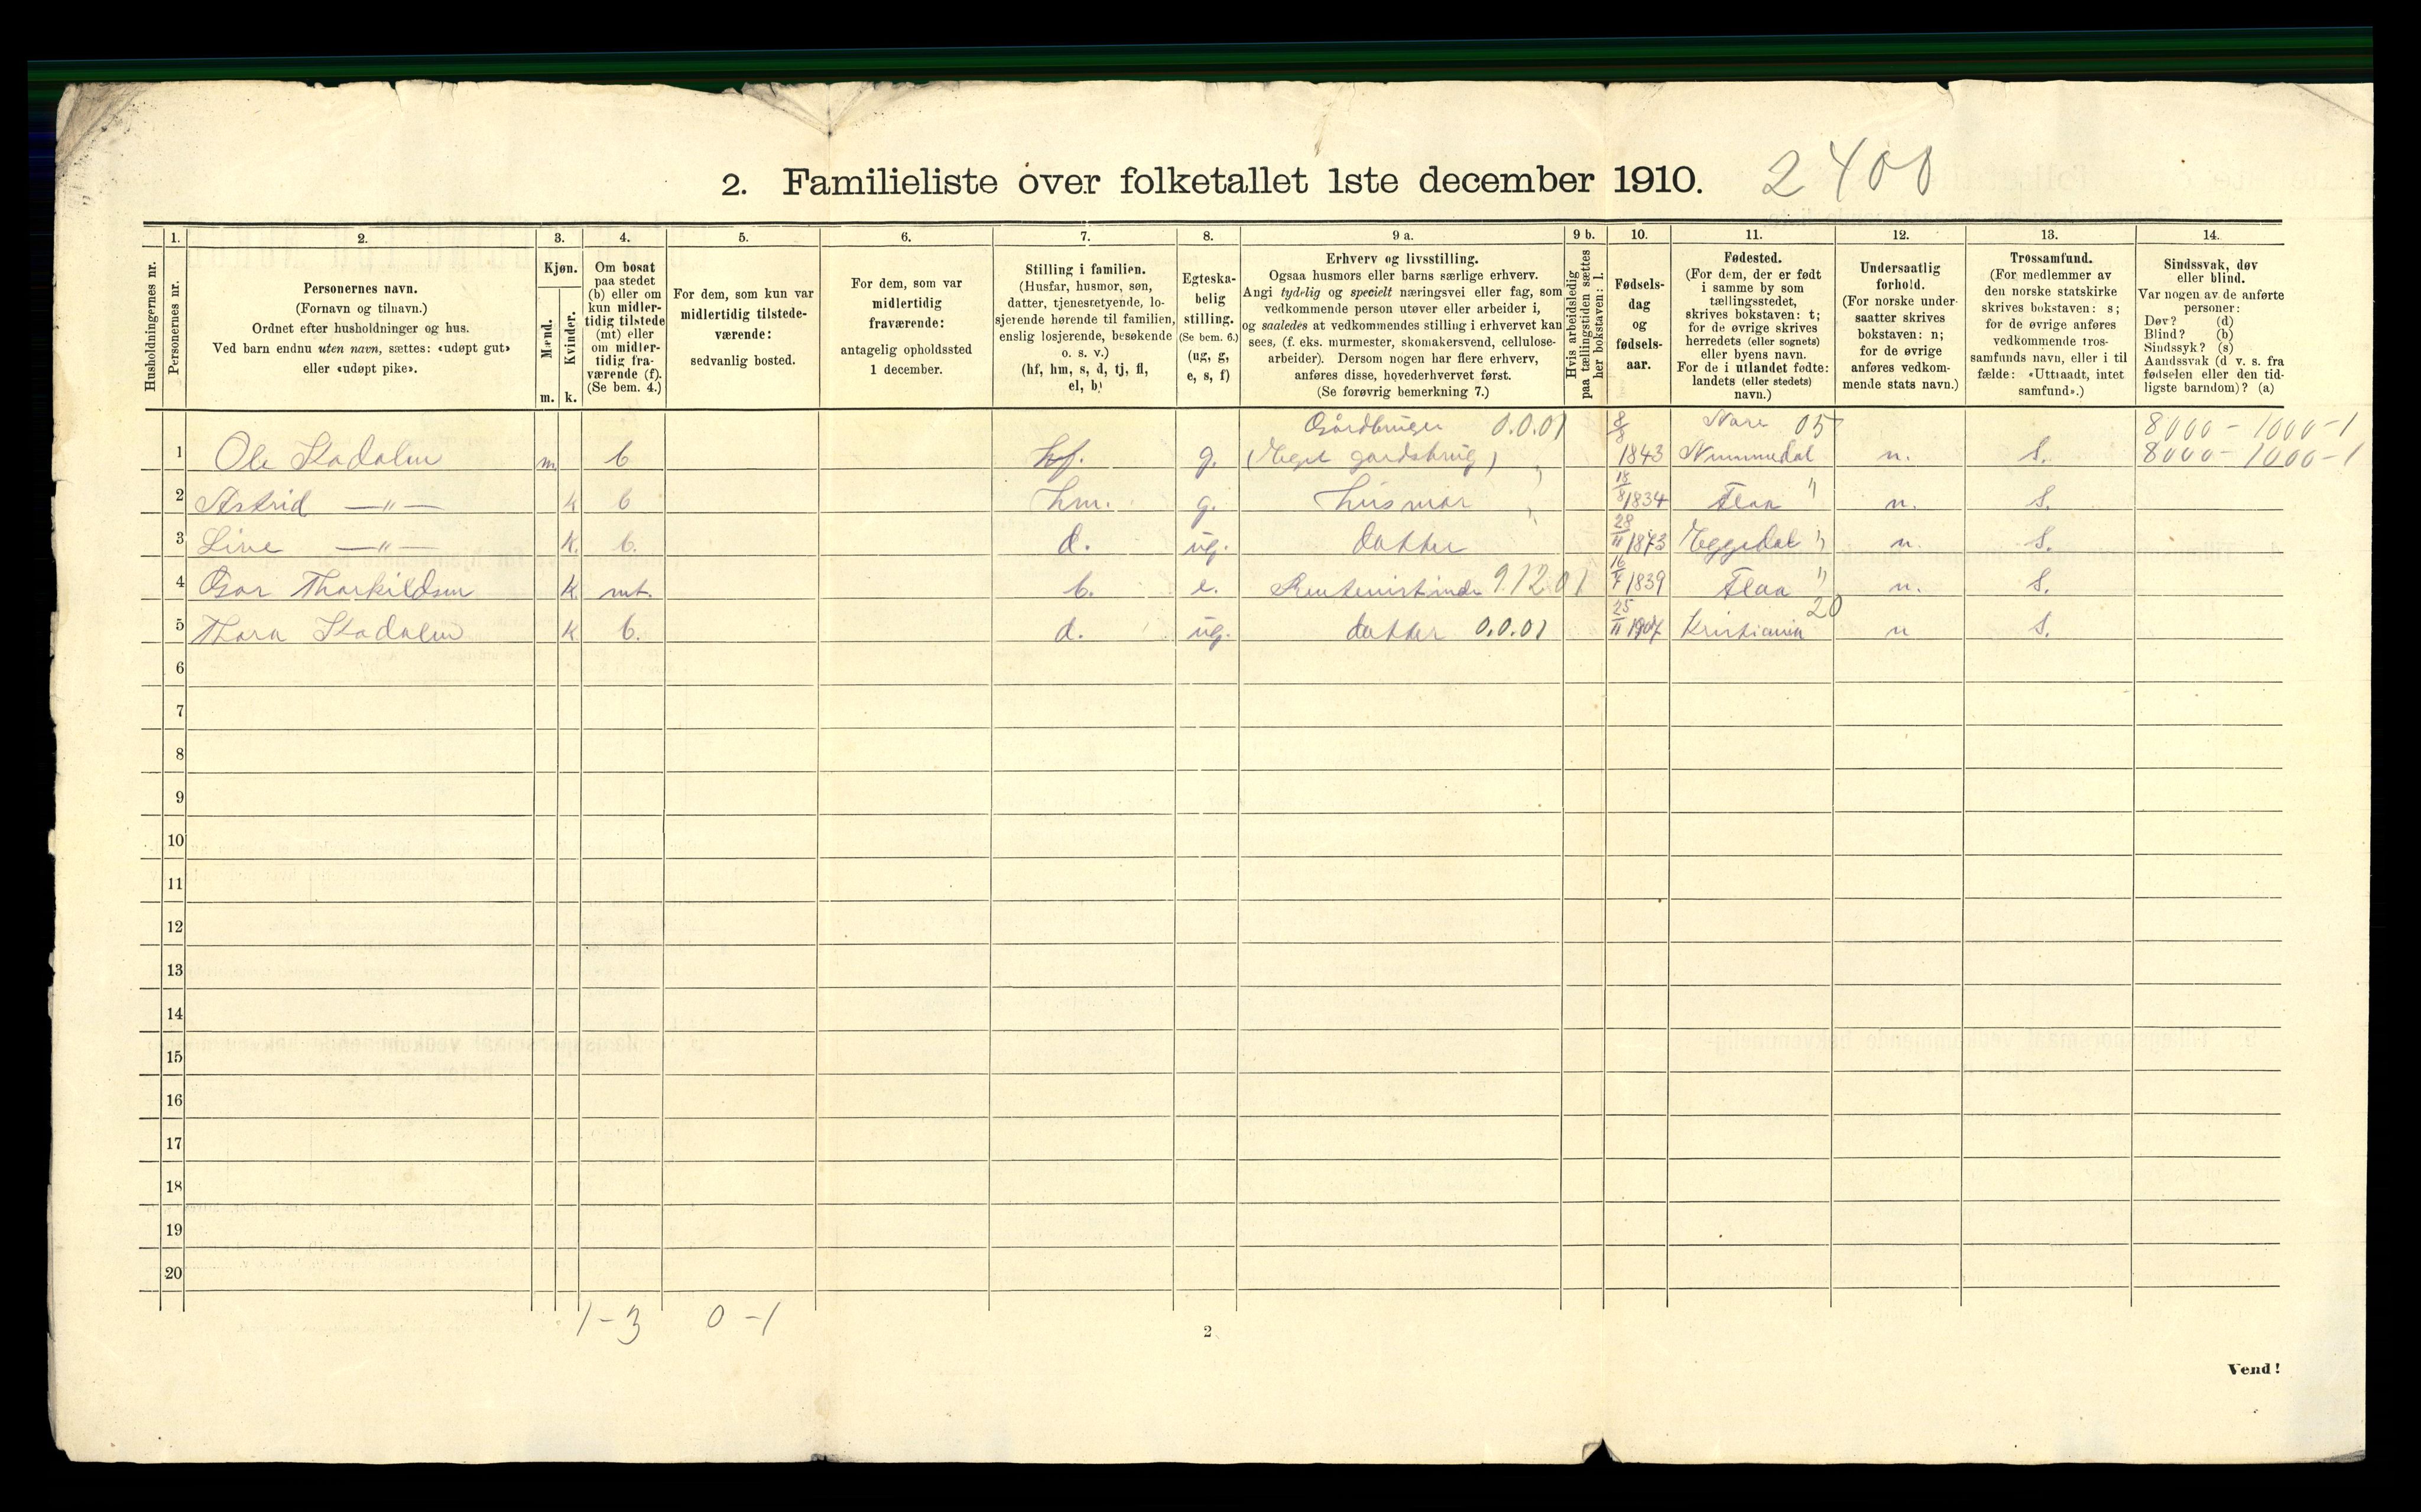 2. Familieliste over folketallet 1ste december 1910. 2400
Husholdningernes nr.
1. Personernes nr.
2. Personernes navn.
(Fornavn og tilnavn.)
Ordnet efter husholdninger og hus.
Ved barn endnu uten navn, sættes: «udøpt gut»
eller «udøpt pike».
3. Kjøn.
Mænd. m.
Kvinder. k.
4. Om bosat
paa stedet
(b) eller om
kun midler-
tidig tilstede
(mt) eller
om midler-
tidig fra-
værende (f).
(Se bem. 4.)
5. For dem, som kun var
midlertidig tilstede-
værende:
sedvanlig bosted.
6. For dem, som var
midlertidig
fraværende:
antagelig opholdssted
1 december.
7. Stilling i familien.
(Husfar, husmor, søn,
datter, tjenestetyende, lo-
sjerende hørende til familien,
enslig losjerende, besøkende
o. s. v.)
(hf, hm, s, d, tj, fl,
el, b)
8. Egteska-
belig
stilling.
(Se bem. 6.)
(ug, g,
e, s, f)
9 a. Erhverv og livsstilling.
Ogsaa husmors eller barns særlige erhverv.
Angi tydelig og specielt næringsvei eller fag, som
vedkommende person utøver eller arbeider i,
og saaledes at vedkommendes stilling i erhvervet kan
sees, (f. eks. murmester, skomakersvend, cellulose-
arbeider). Dersom nogen har flere erhverv,
anføres disse, hovederhvervet først.
(Se forøvrig bemerkning 7.)
9 b. Hvis arbeidsledig
paa tællingstiden sættes
her bokstaven: l.
10. Fødsels-
dag
og
fødsels-
aar.
11. Fødested.
(For dem, der er født
i samme by som
tællingsstedet,
skrives bokstaven: t;
for de øvrige skrives
herredets (eller sognets)
eller byens navn.
For de i utlandet fødte:
landets (eller stedets)
navn.)
12. Undersaatlig
forhold.
(For norske under-
saatter skrives
bokstaven: n;
for de øvrige
anføres vedkom-
mende stats navn.)
13. Trossamfund.
(For medlemmer av
den norske statskirke
skrives bokstaven: s;
for de øvrige anføres
vedkommende tros-
samfunds navn, eller i til
fælde: «Uttraadt, intet
samfund».)
14. Sindssvak, døv
eller blind.
Var nogen av de anførte
personer:
Døv? (d)
Blind? (b)
Sindssyk? (s)
Aandssvak (d v. s. fra
fødselen eller den tid-
ligste barndom)? (a)
Gårdbruger 0.0.01 8/8 Nore 05 8000 - 1000 - 1
1 Ole m b hf. g. (Eget gardsbrug) " 1843 Nummedal n. S. 8000 - 1000 - 1
2 Astrid —"— k b hm. g. husmor " 18/8 1834 Flaa " n. S.
3 Live —"— k. b. d. ug. datter 28/11 1873 Eggedal " n. S.
4 Thorkildsen k. mt. b. e. Rentenistinde 9.12.01 16/7 1839 Flaa " n. S.
5 Thora k b. d. ug. datter 0.0.01 25/11 1907 Kristiania 20 n S.
6
7
8
9
10
11
12
13
14
15
16
17
18
19
20
1-3 0-1
2
Vend!